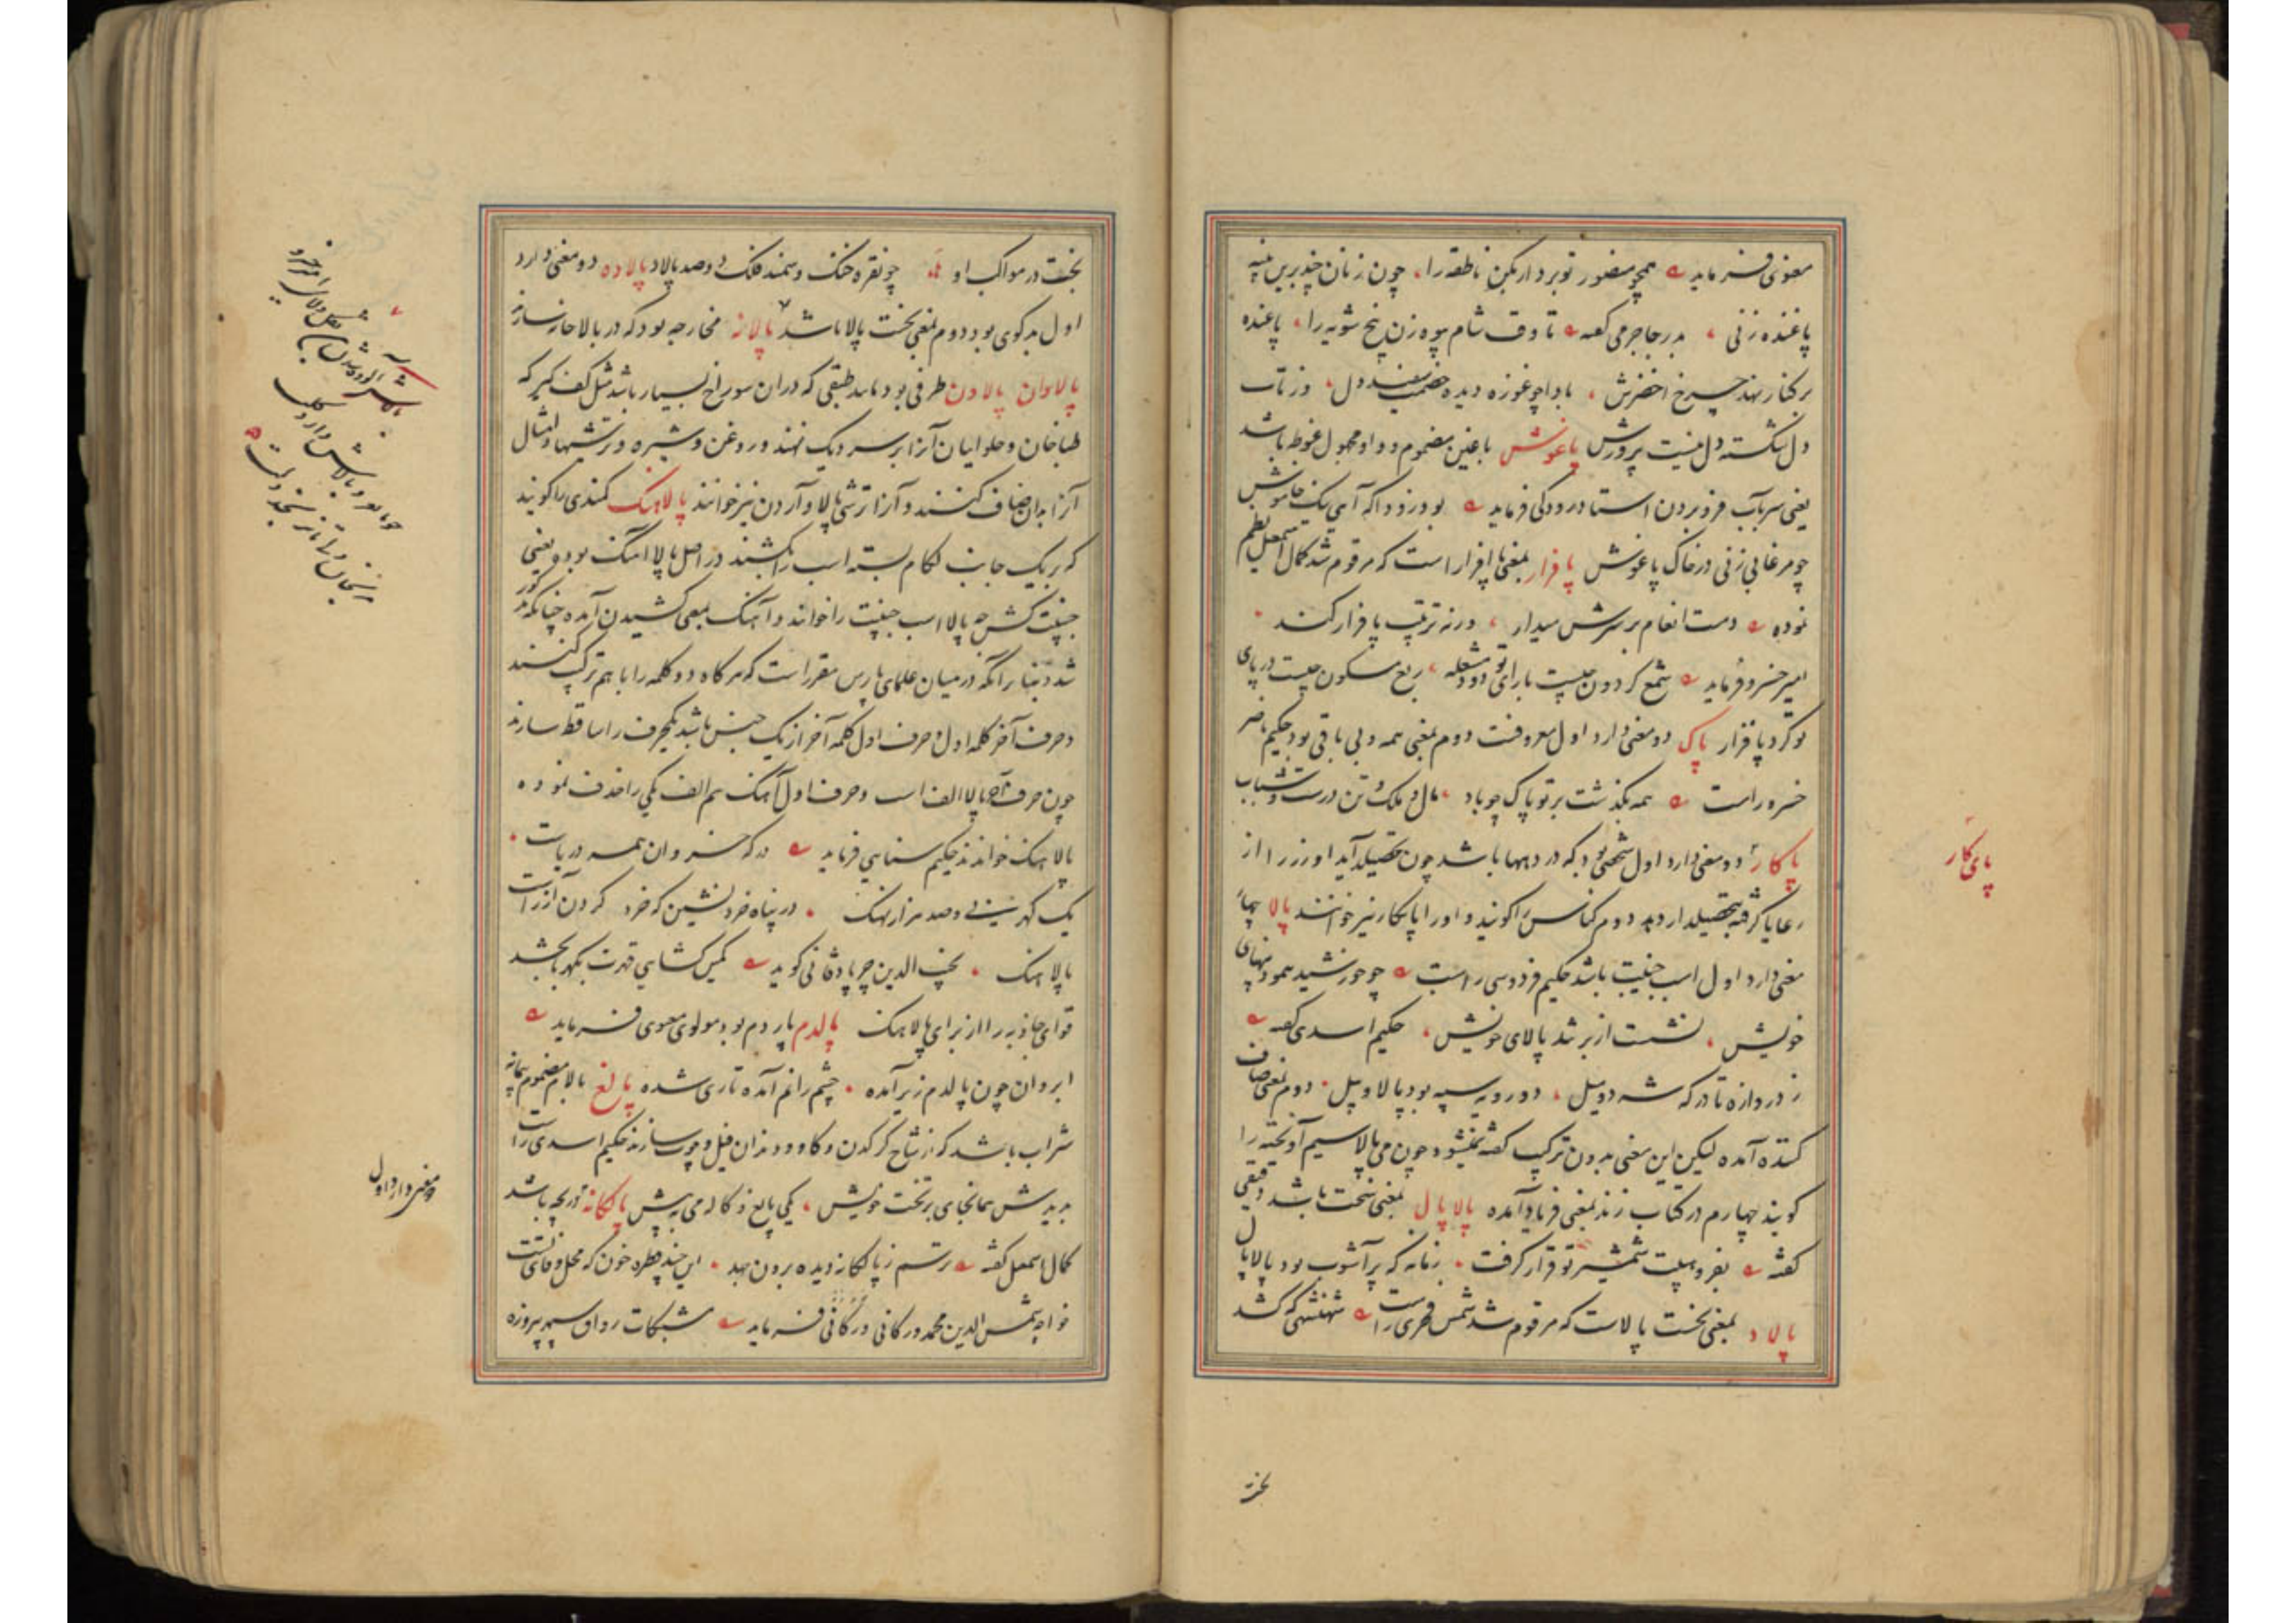 معنوی فرماید همچو منصور تو بردار کن ناطقه را چون زنان چند برین پنبه
پاغنده زنی بدر جاجرمی گفته تا وقت شام بیوه زن پنج شویه را پاغنده
برکنار نهد چرخ اخضرش بادا چو غوزه دیده خصمت سفید و دل
دل شکسته دل پرورش پاغوش با غین مضموم و واو مجهول غوطه باشد
یعنی سر بآب فرو بردن استاد رودکی فرماید بود زودا که آیی نیک خاموش
چو مرغابی زنی در خاک پاغوش پافزار بمعنی پاافزار است که مرقوم شد کمال اسمعیل نظم
نموده دست انعام بر سرش میدار ورنه ترتیب پافزار کند
امیر خسرو فرماید شمع گردون چیست با رای تو دود مشعله ربع مسکون چیست در پای
تو گرد پافزار پاک دو معنی دارد اول معروفست دوم بمعنی همه و بی باقی بود حکیم ناصر
خسرو راست همه بگذشت بر تو پاک چو باد مال و ملک و تن درست و شباب
پاکار دو معنی دارد اول شخصی بود که در دیهها باشد چون تحصیلدار آید او زر را از
رعایا گرفته بتحصیلدار دهد دوم کناس را گویند و او را پایکار نیز خوانند پالا چهار
معنی دارد اول اسب جنیبت باشد حکیم فردوسی راست چو خورشید بنمود پهنای
خویش نشست از بر تند پالای خویش حکیم اسدی گفته
ز دروازه تا درگه شه دو میل دو رویه سپه بود پالا و پیل دوم بمعنی صاف
کننده آمده لیکن این معنی بدون ترکیب گفته نمیشود چون می پالا سیم آویخته را
گویند چهارم در کتاب زند بمعنی فریاد آمده پالاپال بمعنی سخت باشد دقیقی
گفته بفر و هیبت شمشیر تو قرار گرفت زمانه که پرآشوب بود پالاپال
پالاد بمعنی نخست پالاست که مرقوم شد شمس فخری راست شهنشهی که کشد
پای کار
بخت
بخت در مواکب او چو نقره خنگ و سمند فلک دو صد پالاد پالاده دو معنی دارد
اول بدگوی بود دوم بمعنی نخست پالا باشد پالانه مخارجه بود که در بالاخانه سازند
پالاوان پالاون ظرفی بود مانند طبقی که در ان سوراخ بسیار باشد مثل کف گیر که
طباخان و حلواییان آنرا بر سر دیگ نهند و روغن و شیره و ترشیها و امثال
آنرا بدان صاف کنند و آنرا ترشی پالا و آردن نیز خوانند پالاهنگ کمندی را گویند
که بر یک جانب لگام بسته اسب را کشند در اصل پالا آهنگ بوده یعنی
جنیبت کش چه پالا اسب جنیبت را خوانند و آهنگ بمعنی کشیدن آمده چنانکه مذکور
شد و بنا بر آنکه در میان علمای پارس مقرر است که هر گاه دو کلمه را با هم ترکیب کنند
و حرف آخر کلمه اول و حرف اول کلمه آخر از یک جنس باشد یکحرف را ساقط سازند
چون حرف آخر پالا الف است و حرف اول آهنگ هم الف یکی را حذف نموده
پالاهنگ خوانند حکیم سنایی فرماید درگه خسروان همه دریاست
یک گهر نی و صد هزار نهنگ در پناه خرد نشین که خرد گردن آز راست
پالاهنگ نجیب الدین جرپادقانی گوید کمین گشایی قهرت بکهربا بخشد
قوای جاذبه را از برای پالاهنگ پالدم پاردم بود مولوی معنوی فرماید
ابروان چون پالدم زیر آمده چشم را نم آمده تاری شده پالغ با لام مضموم پیمانه
شراب باشد که از شاخ کرگدن و گاو و دندان فیل و چوب سازند حکیم اسدی راست
بدیدش همانجای بر تخت خویش یکی پالغ و کاله می به پیش پالکانه دریچه باشد
کمال اسمعیل گفته رستم ز پالکانه دیده برون جهد این چند قطره خون که محل وفای تست
خواجه شمس الدین محمد درکانی درکانی فرماید مشبکات رواق سپهر پیروزه
دو معنی دارد اول